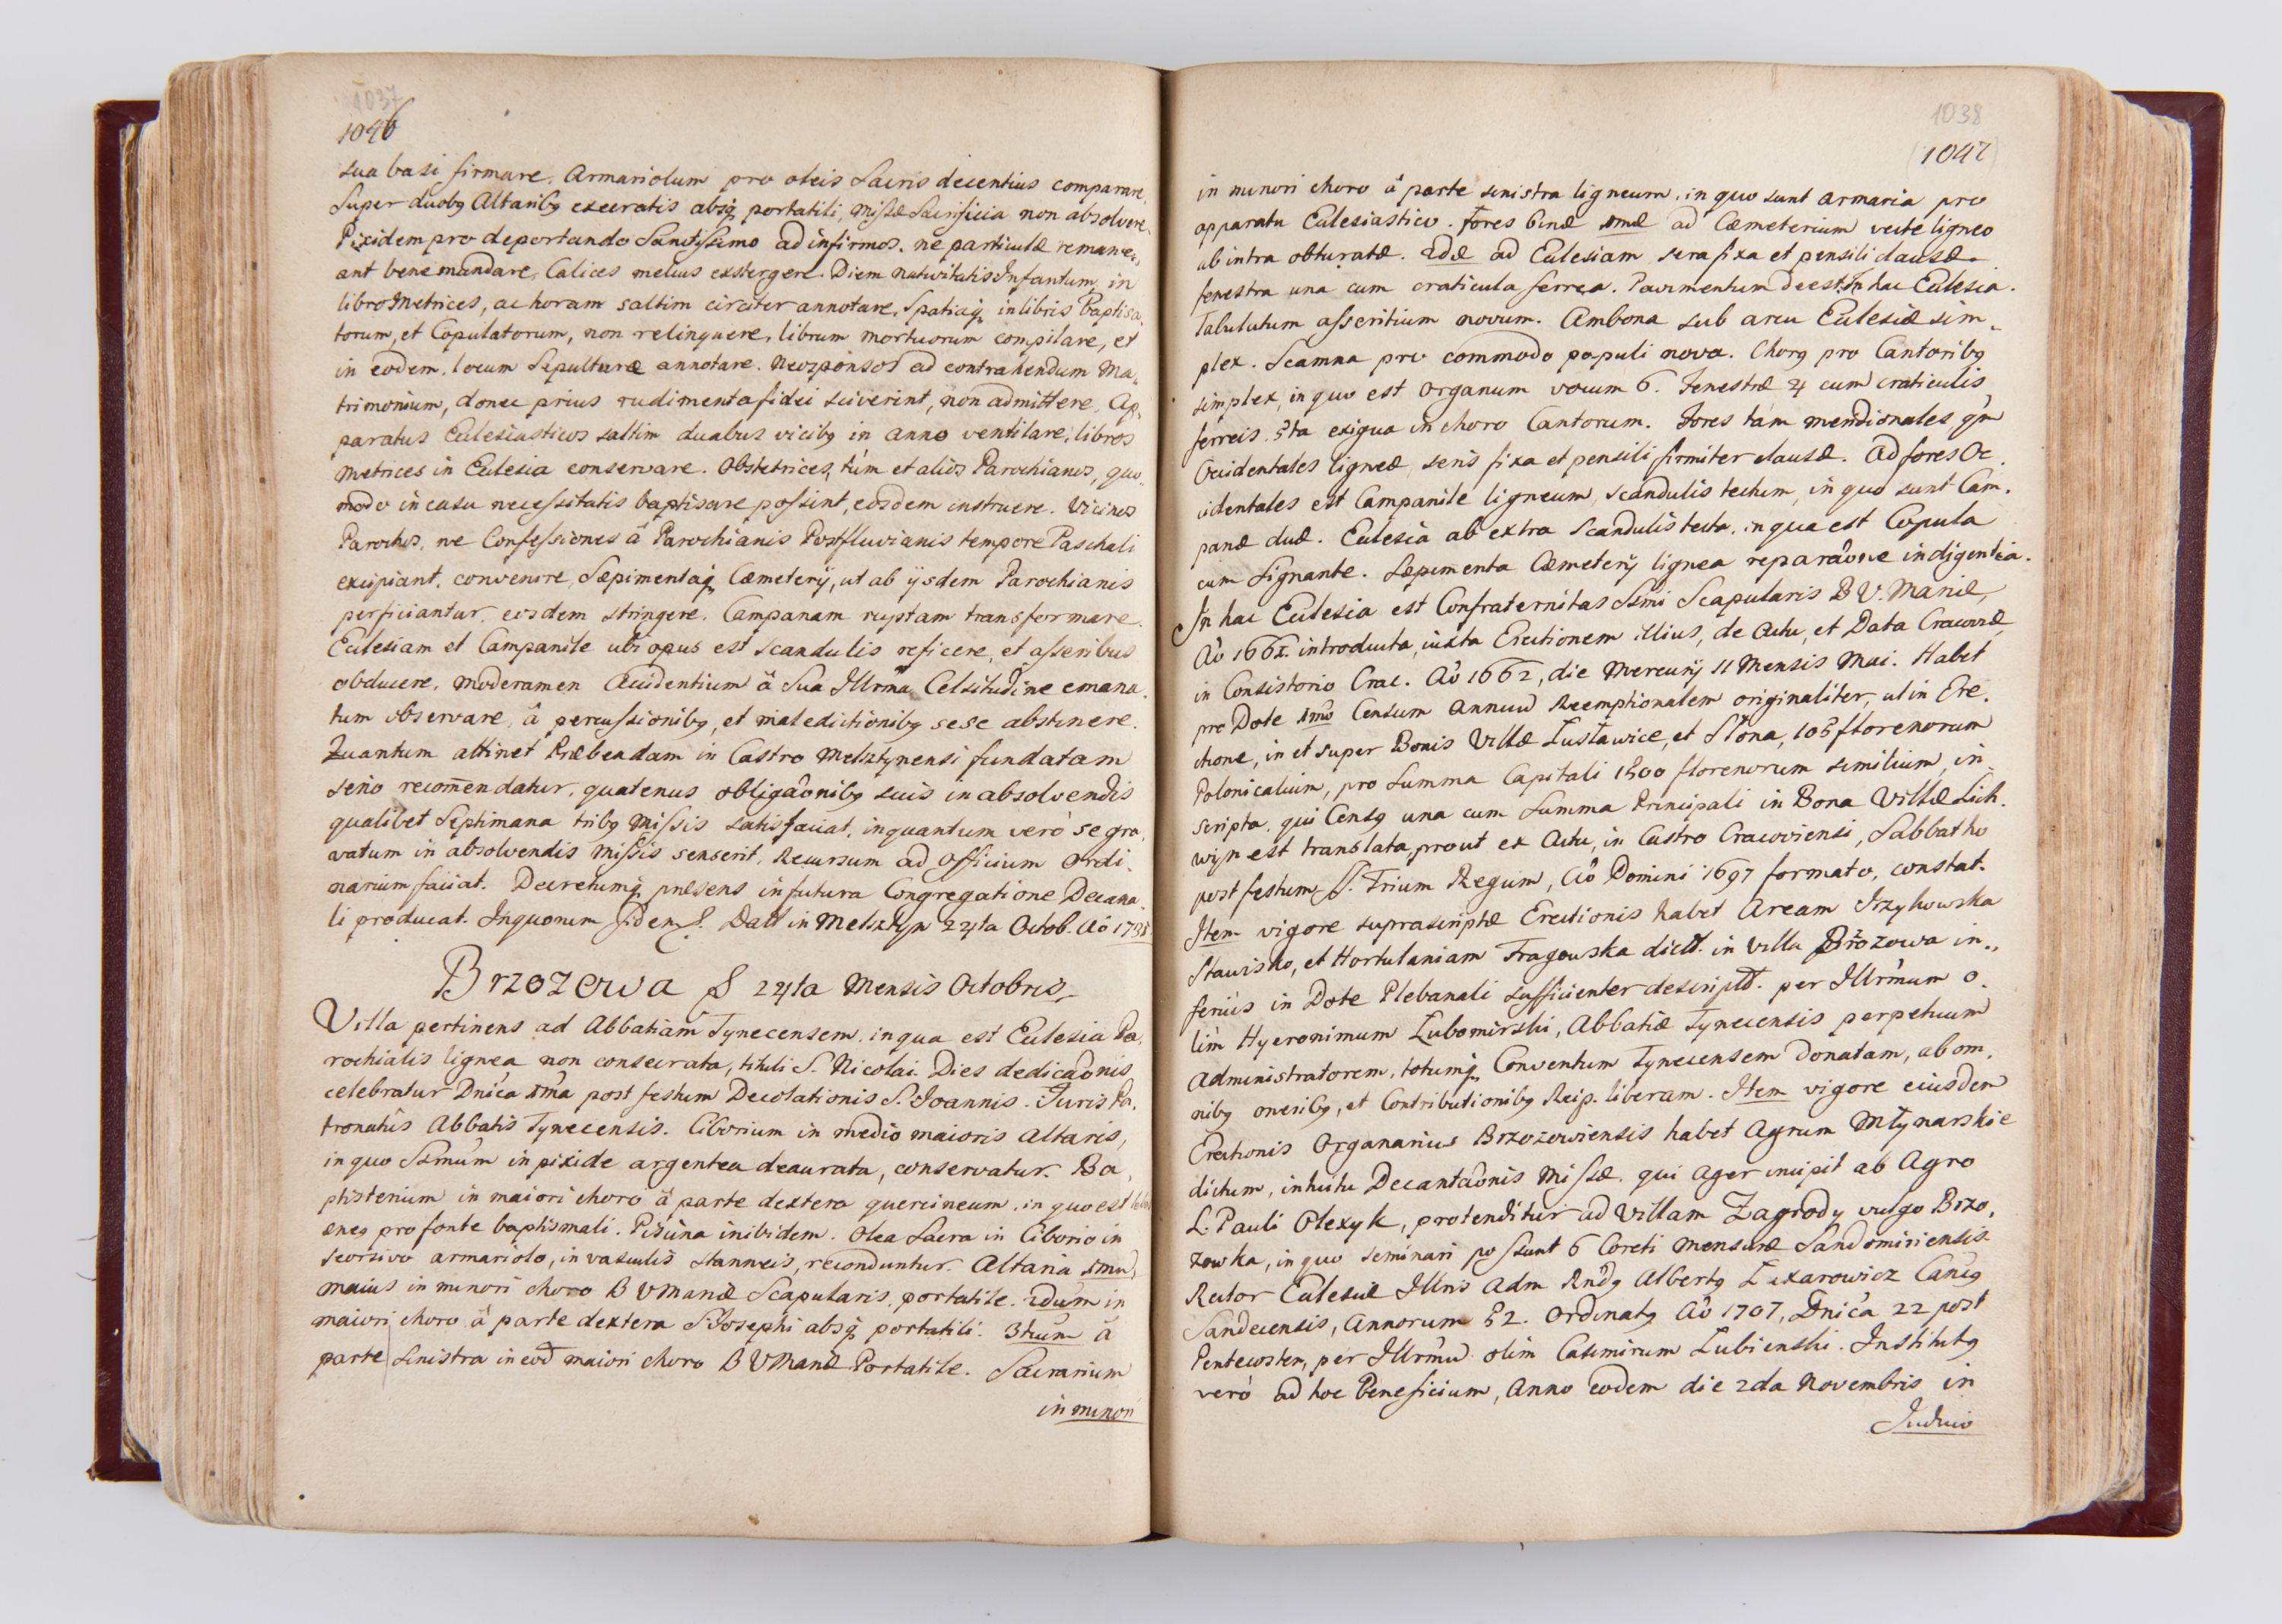 1037
1046
sua basi firmare. Armariolum pro oleis Sacris decentius comparare,
Super duobꝫ Altaribꝫ execratis absqꝫ portatili, Missæ Sacrificia non absolvere,
Pixidem pro deportando Sanctissimo ad infirmos, ne particulæ remane,
ant bene mandare, Calices melius exstergere. Diem nativitatis Infantum, in
libro Metrices, ac horam saltim circiter annotare, Spatiaqꝫ in libris Baptisa,
torum, et Copulatorum, non relinquere, librum mortuorum compilare, et
in eodem, locum Sepulturæ annotare. Neosponsos ad contrahendum Ma,
trimonium, donec prius rudimenta fidei sciverint, non admittere. Ap,
paratus Ecclesiasticos saltim duabus vicibꝫ in anno ventilare, libros
Metrices in Eclesia conservare. Obstetrices, túm et alios Parochianos, quo,
modo in casu necessitatis baptisare possint, eosdem instruere. Vicinos
Parochos, ne Confessiones â Parochianis Postfluvianis tempore Paschali
excipiant, convenire, Sæpimentaqꝫ Cæmeterij, ut ab ijsdem Parochianis
perficiantur, eosdem stringere. Campanam ruptam transformare.
Eclesiam et Campanile ubi opus est scandulis reficere, et asseribus
obducere, moderamen Accidentium â Sua Illrma Celsitudine emana,
tum observare, â percussionibꝫ, et maledictionibꝫ sese abstinere.
Quantum attinet Præbendam in Castro Melsztynensi fundatam
serio recom̄endatur, quatenus obligaônibꝫ suis in absolvendis
qualibet Septimana tribꝫ Missis satisfaciat, inquantum verò se gra,
vatum in absolvendis Missis senserit, Recursum ad Officium Ordi,
narium faciat. Decretumqꝫ præsens in futura Congregatione Decana,
li producat. In quorum fidem &. Datt in Melsztyn 24ta Octob. Aô 1731
Brzozowa & 24ta Mensis Octobris
Villa pertinens ad Abbatiam Tynecensem, in qua est Eclesia Pa,
rochialis lignea non consecrata, tituli S. Nicolai. Dies dedicaônis
celebratur Dnica 1ma post festum Decolationis S. Joannis. Juris Pa,
tronatûs Abbatis Tynecensis. Ciborium in medio maioris Altaris,
in quo Ssmum in pixide argentea deaurata, conservatur. Ba,
ptisterium in maiori choro â parte dextera querceineum, in quo est
æneꝫ pro fonte baptismali. Piscina inibidem. Olea Sacra in Ciborio in
seorsivo armariolo, in vasculis stanneis, reconduntur. Altaria 1mū,
maius in minori choro B V Mariæ Scapularis, portatile. 2dum in
maiori choro â parte dextera S. Josephi absqꝫ portatili. 3tium â
parte sinistra in eod maiori choro B V Mariæ Portatile. Sacrarium
in minori
1038
1047
in minori choro â parte sinistra ligneum, in quo sunt armaria pro
apparatu Eclesiastico. Fores binæ 1mæ ad Cæmeterium vecte ligneo
ab intra obturatæ. 2dæ ad Eclesiam sera fixa et pensili clausæ.
fenestra una cum craticula ferrea. Pavimentum deest. In hac Eclesia.
Tabulatum asseritium novum. Ambona sub arcu Eclesiæ sim,
plex. Scamna pro commodo populi nova. Chorꝫ pro Cantoribꝫ
simplex, in quo est Organum vocum 6. Fenestræ 4 cum craticulis
ferreis, 5ta exigua in choro Cantorum. Fores tam meridionales qm
Occidentales ligneæ, seris fixa et pensili firmiter clausæ. Ad fores Oc,
cidentales est Campanile ligneum, scandulis tectum, in quo sunt Cam,
panæ duæ. Eclesia ab extra Scandulis tecta, in qua est Copula
cum Signante. Sæpimenta Cæmeterij lignea reparaône indigentia.
In hac Eclesia est Confraternitas Ssmi Scapularis B V. Mariæ,
Aô 1662 introducta, iuxta Erectionem illius, de Actu, et Data Cracoviæ
in Consistorio Crac. Aô 1662, die Mercurij 11 Mensis Mai. Habet
pro Dote 1mo Censum Annuū Reemptionalem originaliter, ut in Ere,
ctione, in et super Bonis Villæ Lusławice, et Słona, 105 florenorum
Polonicalium, pro Summa Capitali 1500 florenorum similium, in,
scripta, qui Censꝫ una cum Summa Principali in Bona Villæ Lich,
wijn est translata, prout ex Actu, in Castro Cracoviensi, Sabbatho
post festum S. Trium Regum, Aô Domini 1697 formato, constat.
Item vigore suprascriptæ Erectionis habet Aream Irzykowska
Stawisko, et Hortulaniam Fragowska dictt. in Villa Brzozowa in,,
feriùs in Dote Plebanali sufficienter descriptt. per Illr̄mum o,
lim Hyeronimum Lubomirski, Abbatiæ Tynecensis perpetuum
Administratorem, totumqꝫ Conventum Tynecensem donatam, ab om,
nibꝫ oneribꝫ, et Contributionibꝫ Reip. liberam. Item vigore eiusdem
Erectionis Organarius Brzozowiensis habet Agrum Młynarskie
dictum, intuitu Decantaônis Missæ, qui Ager incipit ab Agro
L. Pauli Olexyk, protenditur ad Villam Zagrody vulgo Brzo,
zowka, in quo seminari possunt 6 Coreti mensuræ Sandomiriensis
Rector Eclesiæ Illris Adm Rndꝫ Albertꝫ Lekarowicz Canꝫ
Sandecensis, Annorum 52. Ordinatꝫ Aô 1707, Dnica 22 post
Pentecosten, per Illrmū olim Casimirum Łubienski. Institutꝫ
verò ad hoc Beneficium, Anno eodem die 2da Novembris in
Judicio